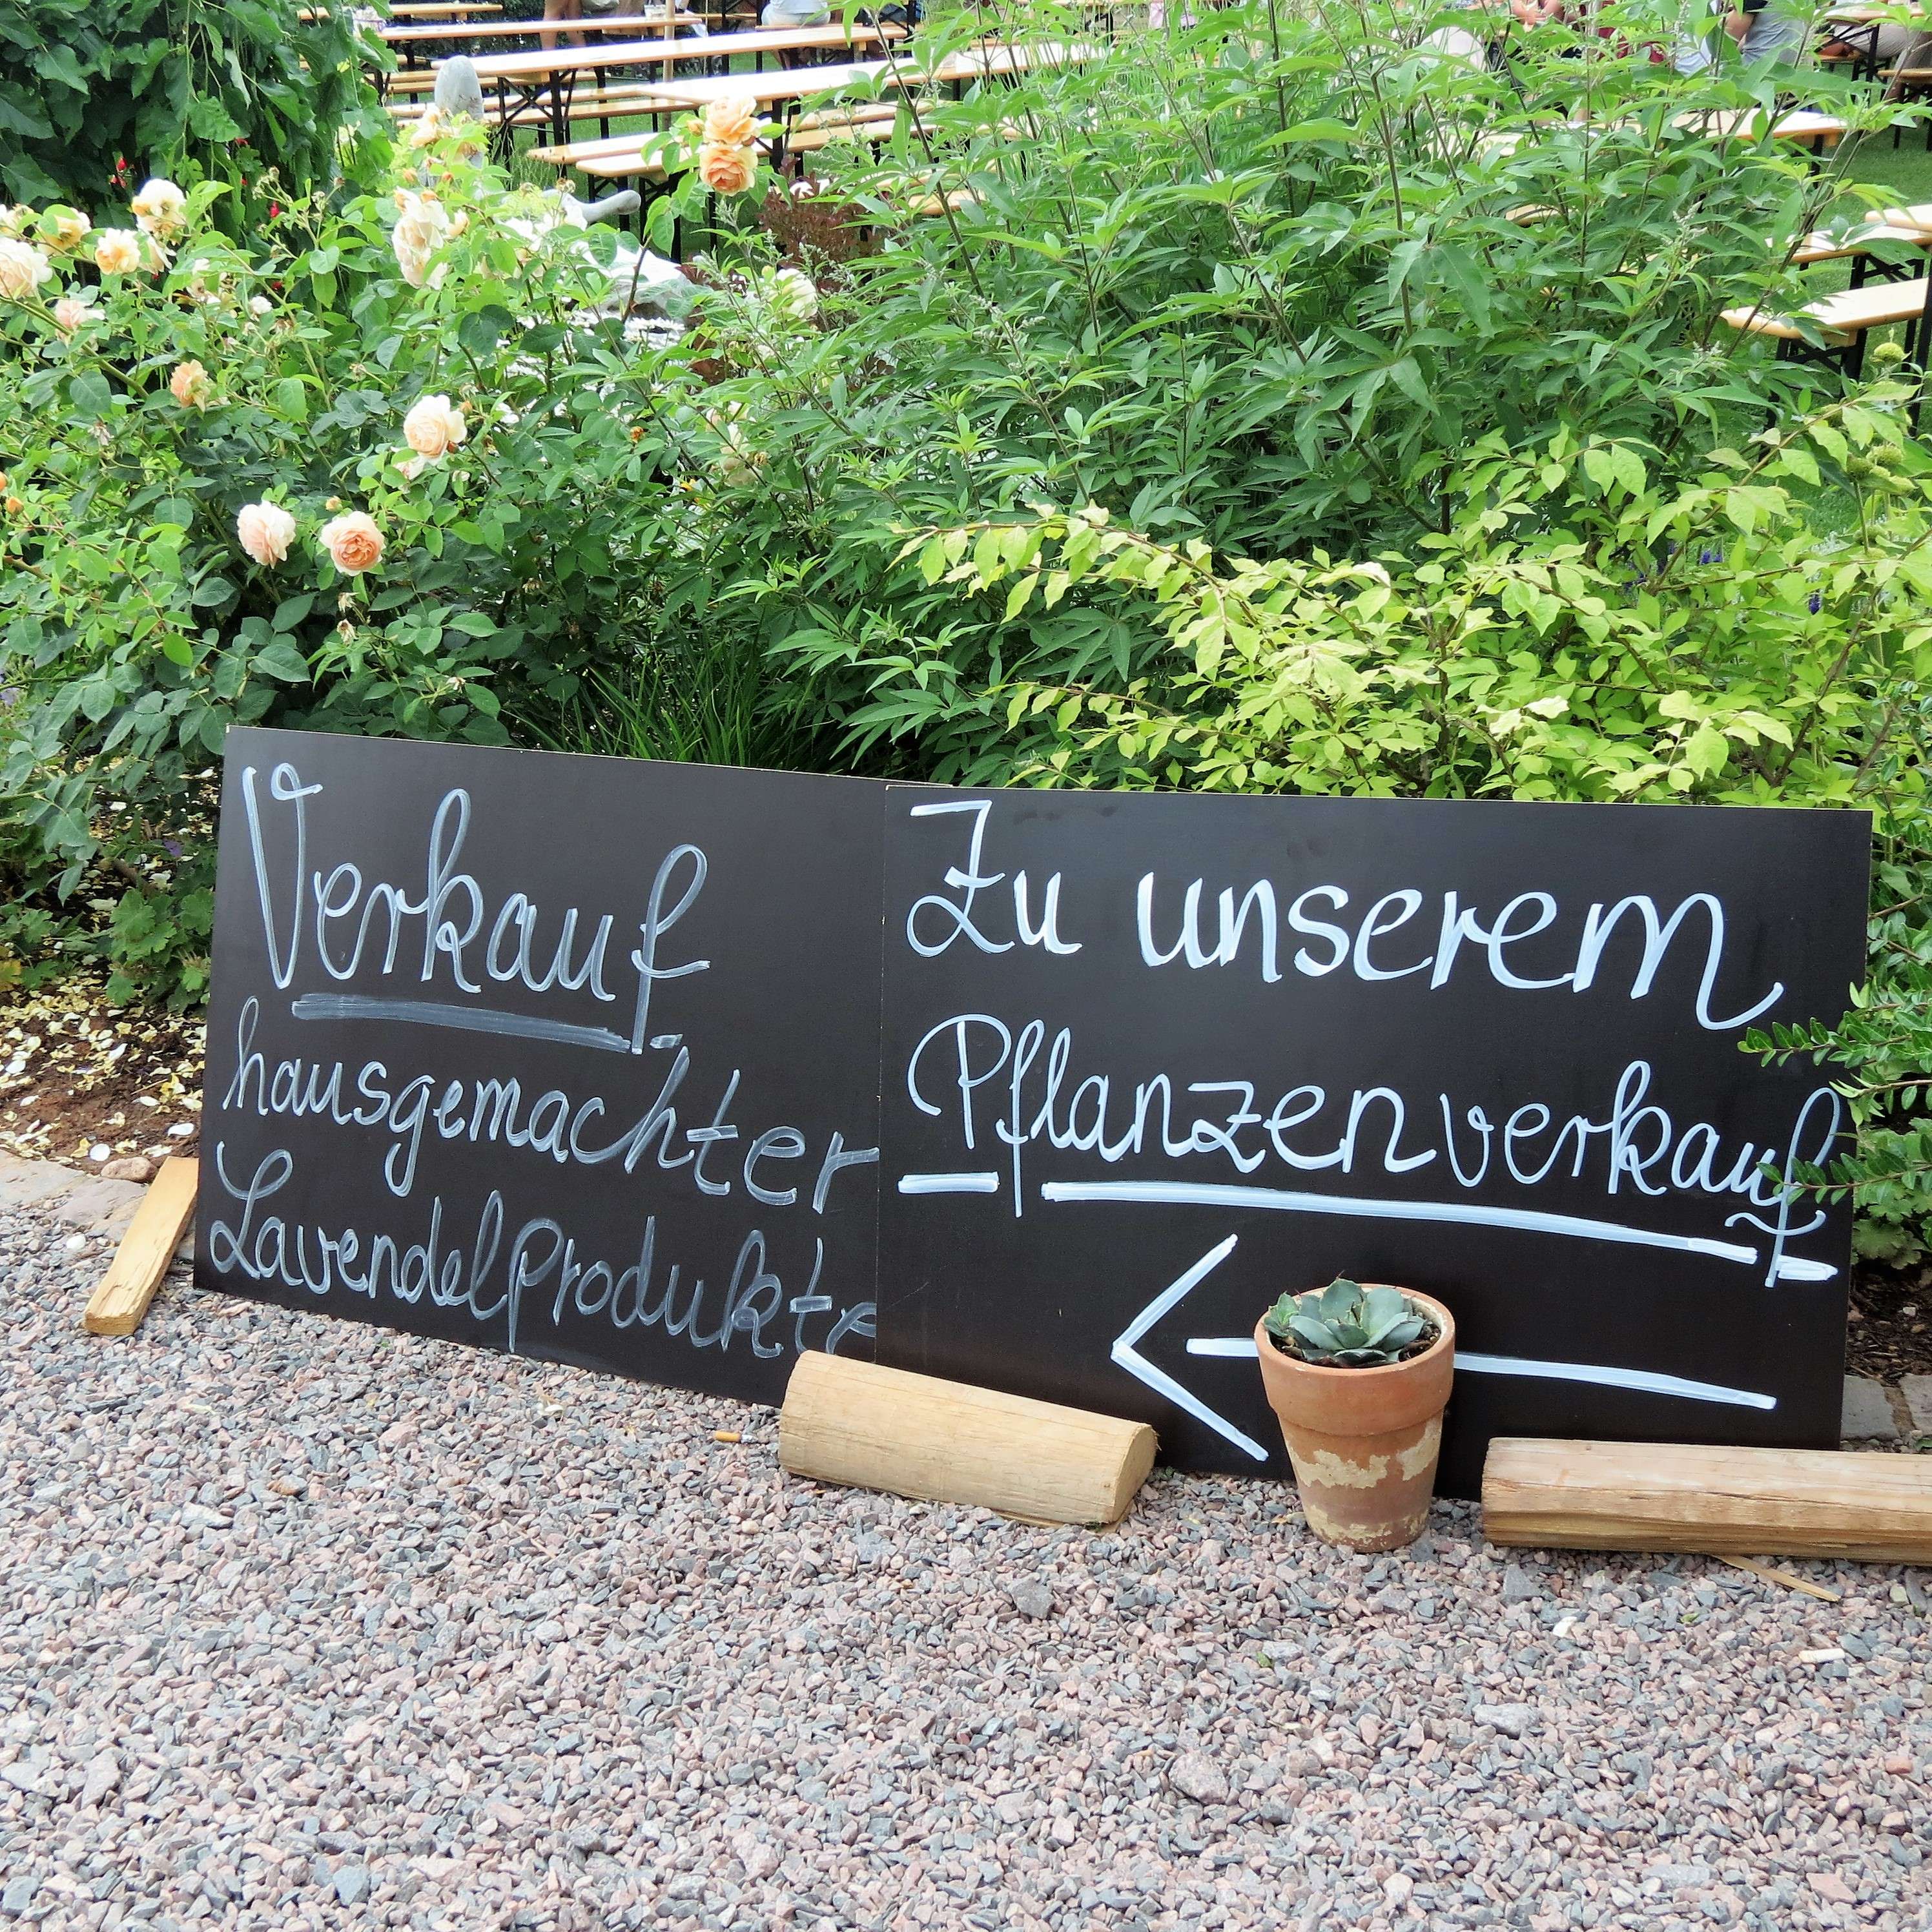 Verkauf
hausgemachter
Lavendelprodukte
Zu unserem
Pflanzenverkauf